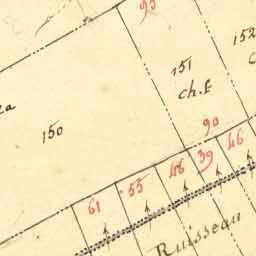 93
152
151
ch. f
150
90
46
39
46
55
61
Ruisseau